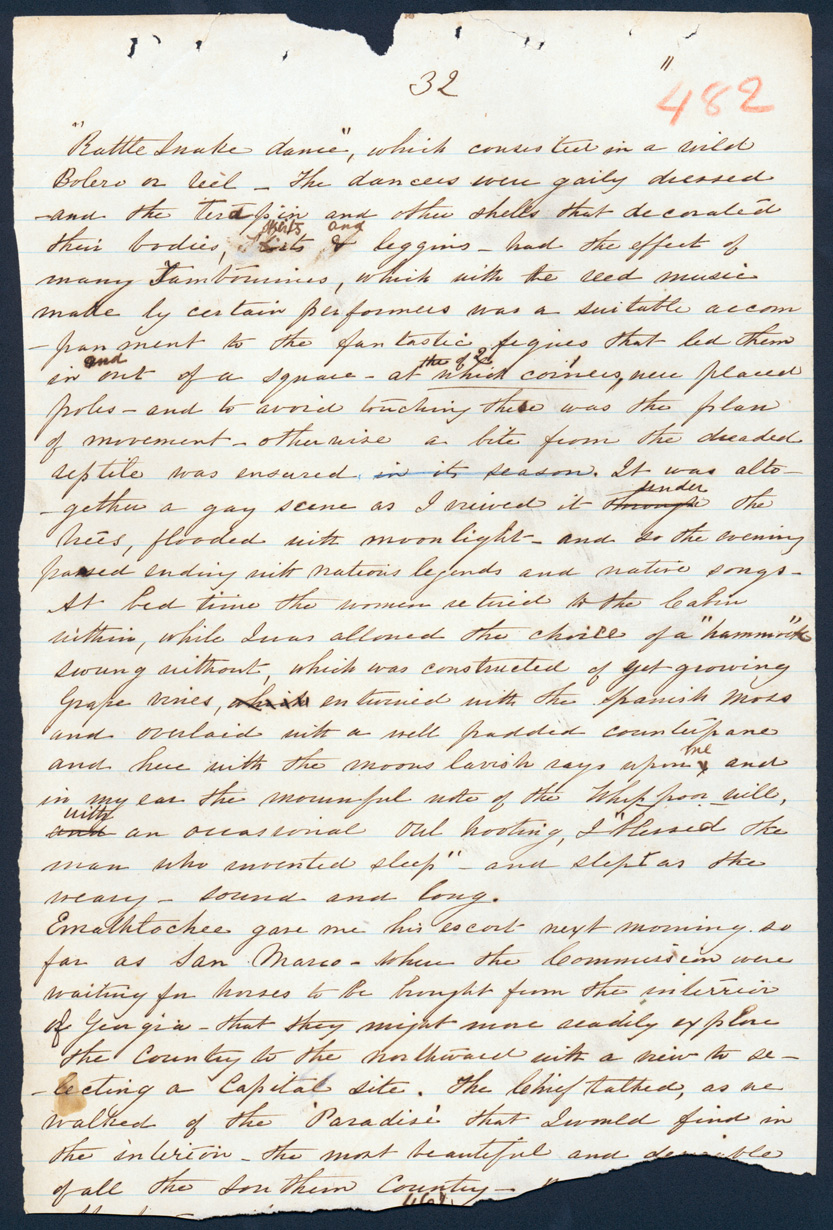 32
482
"Rattle Snake dance", which consisted in a wild
Bolero or reel - The dancers were gaily dressed
-and the terapin and other shells that decorated
their bodies, skirts and leggins - had the effect of
many Tambourines, which with the reed music
made by certain performers was a suitable accom
-paniment to the fantastic figures that led them
in and out of a square - at the 4 of which corners, were placed
poles - and to avoid touching these was the plan
of movement - otherwise a bite from the dreaded
reptile was ensured in its season. It was alto-
-gether a gay scene as I viewed it through under the
trees, flooded with moonlight - and so the evening
passed ending with nations legends and native songs -
At bed time the women retired to the Cabin
within, while I was allowed the choice of a "hammock"
swung without, which was constructed of yet growing
Grape vines, which entwined with the Spanish Moss
and overlaid with a well padded counterpane
and here with the moons lavish rays upon me and
in my ear the mournful note of the Whip poor will,
and with an occasional Owl hooting, I "blessed the
man who invented sleep" - and slept as the
weary - sound and long.
Emathlochee gave me his escort next morning so
far as San Marco - where the Commission were
waiting for horses to be brought from the interior
of Georgia - that they might more readily explore
the Country to the northward with a view to se-
-lecting a Capital site. The Chief talked, as we
walked of the 'Paradise' that I would find in
the interior - the most beautiful and desirable
of all the Southern Country -